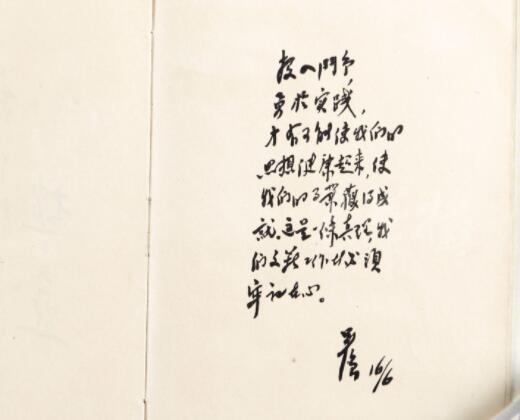 投入鬥争，
勇於实践，
才有可能使我们的
思想健康起来，使
我们的事業獲得成
就。这是一條真理，我
们文艺工作者必須
牢记在心。
16/6